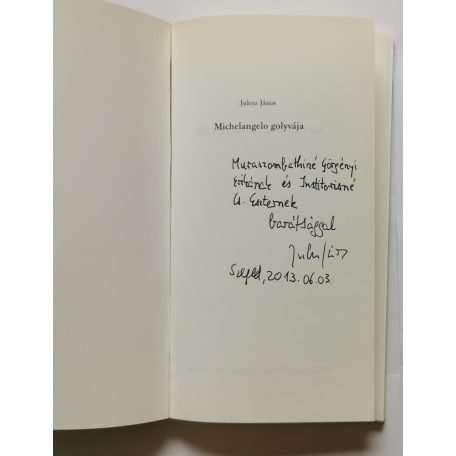 Julesz János
Michelangelo golyvája
Muraszombathiné Görgényi
Erikának és Institorisné
Cs. Eszternek
barátsággal
Szeged, 2013.06.03